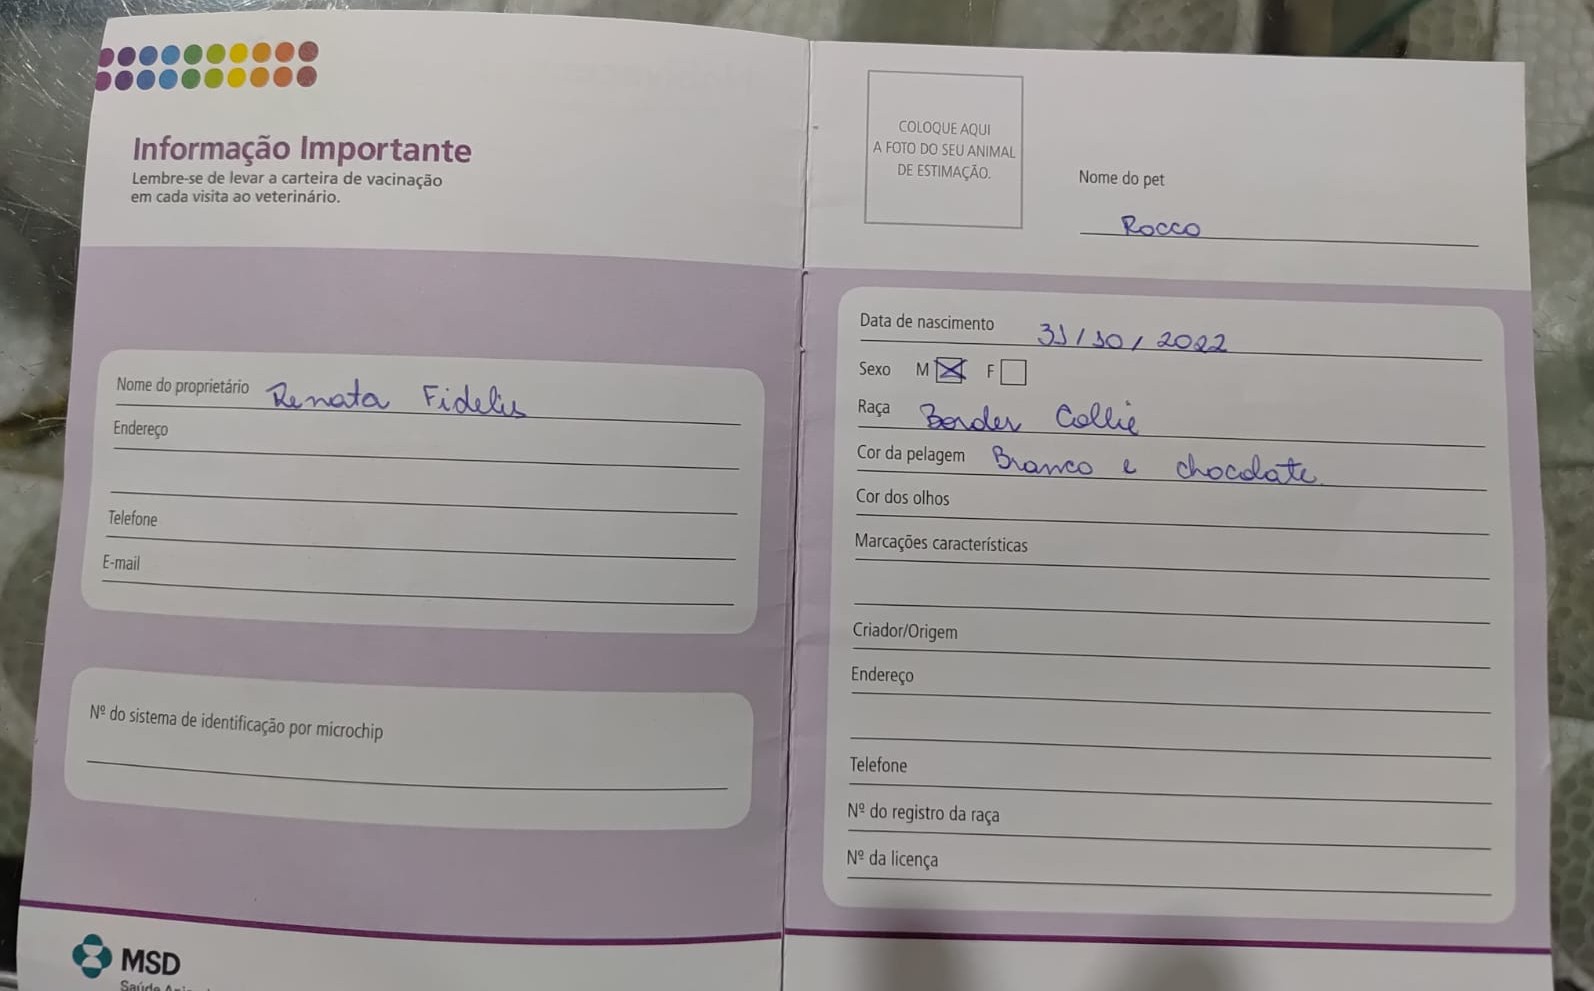 Informação Importante
Lembre-se de levar a carteira de vacinação
em cada visita ao veterinário.
Nome do proprietário Renata Fidelis
Endereço
Telefone
E-mail
Nº do sistema de identificação por microchip
MSD
Saúde
COLOQUE AQUI
A FOTO DO SEU ANIMAL
DE ESTIMAÇÃO.
Nome do pet
Rocco
Data de nascimento 31/10/2022
Sexo M F
Raça Border Collie
Cor da pelagem Branco e chocolate
Cor dos olhos
Marcações características
Criador/Origem
Endereço
Telefone
Nº do registro da raça
Nº da licença